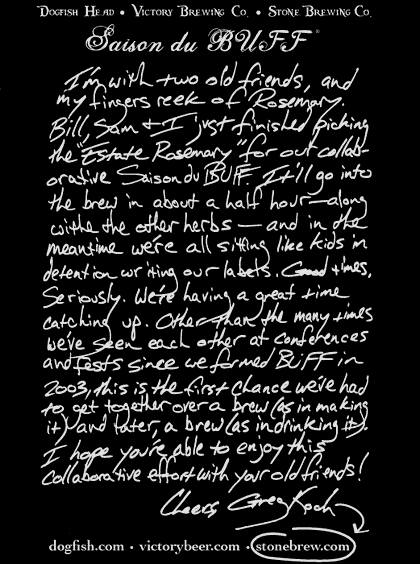 Dogfish Head • Victory Brewing Co. • Stone Brewing Co.
Saison du BUFF
I'm with two old friends, and
my fingers reek of Rosemary.
Bill, Sam + I just finished picking
the "Estate Rosemary" for our collab-
orative Saison du BUFF. It'll go into
the brew in about a half hour—along
withe the other herbs — and in the
meantime we're all sitting like kids in
detention writing our labels. Good times,
Seriously. We're having a great time
catching up. Other than the many times
we've seen each other at conferences
and fests since we formed BUFF in
2003, this is the first chance we've had
to get together over a brew (as in making
it) and later, a brew (as in drinking it).
I hope you're able to enjoy this
collaborative effort with your old friends!
Cheers, Greg Koch
dogfish.com • victorybeer.com • stonebrew.com